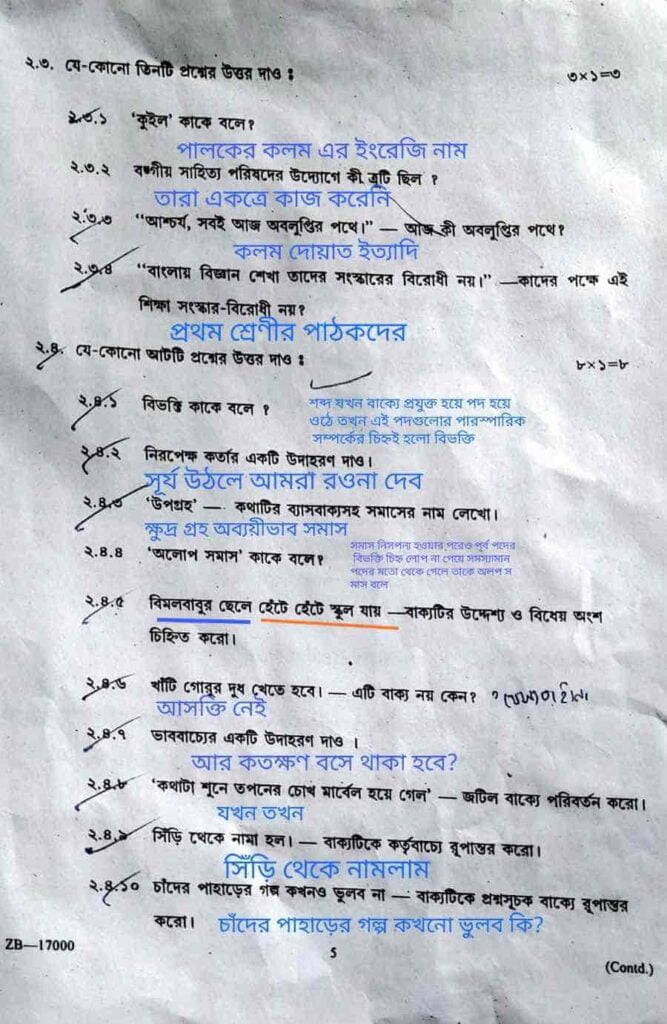 ২.৩. যে-কোনো তিনটি প্রশ্নের উত্তর দাও : ৩×১=৩
২.৩.১ ‘কুইল’ কাকে বলে?
পালকের কলম এর ইংরেজি নাম
২.৩.২ বঙ্গীয় সাহিত্য পরিষদের উদ্যোগে কী ত্রুটি ছিল ?
তারা একত্রে কাজ করেনি
২.৩.৩ “আশ্চর্য, সবই আজ অবলুপ্তির পথে।” — আজ কী অবলুপ্তির পথে?
কলম দোয়াত ইত্যাদি
২.৩.৪ “বাংলায় বিজ্ঞান শেখা তাদের সংস্কারের বিরোধী নয়।” —কাদের পক্ষে এই
শিক্ষা সংস্কার-বিরোধী নয়?
প্রথম শ্রেণীর পাঠকদের
২.৪. যে-কোনো আটটি প্রশ্নের উত্তর দাও : ৮×১=৮
২.৪.১ বিভক্তি কাকে বলে ?
শব্দ যখন বাক্যে প্রযুক্ত হয়ে পদ হয়ে
ওঠে তখন এই পদগুলোর পারস্পারিক
সম্পর্কের চিহ্নই হলো বিভক্তি
২.৪.২ নিরপেক্ষ কর্তার একটি উদাহরণ দাও।
সূর্য উঠলে আমরা রওনা দেব
২.৪.৩ ‘উপগ্রহ’ — কথাটির ব্যাসবাক্যসহ সমাসের নাম লেখো।
ক্ষুদ্র গ্রহ অব্যয়ীভাব সমাস
২.৪.৪ ‘অলোপ সমাস’ কাকে বলে?
সমাস নিসপন্য হওয়ার পরেও পূর্ব পদের
বিভক্তি চিহ্ন লোপ না পেয়ে সমস্যামান
পদের মতো থেকে গেলে তাকে অলপ স
মাস বলে
২.৪.৫ বিমলবাবুর ছেলে হেঁটে হেঁটে স্কুল যায় —বাক্যটির উদ্দেশ্য ও বিধেয় অংশ
চিহ্নিত করো।
২.৪.৬ খাঁটি গোরুর দুধ খেতে হবে। — এটি বাক্য নয় কেন?
আসক্তি নেই
২.৪.৭ ভাববাচ্যের একটি উদাহরণ দাও ।
আর কতক্ষণ বসে থাকা হবে?
২.৪.৮ ‘কথাটা শুনে তপনের চোখ মার্বেল হয়ে গেল’ — জটিল বাক্যে পরিবর্তন করো।
যখন তখন
২.৪.৯ সিঁড়ি থেকে নামা হল। — বাক্যটিকে কর্তৃবাচ্যে রূপান্তর করো।
সিঁড়ি থেকে নামলাম
২.৪.১০ চাঁদের পাহাড়ের গল্প কখনও ভুলব না — বাক্যটিকে প্রশ্নসূচক বাক্যে রূপান্তর
করো। চাঁদের পাহাড়ের গল্প কখনো ভুলব কি?
ZB—17000
5
(Contd.)